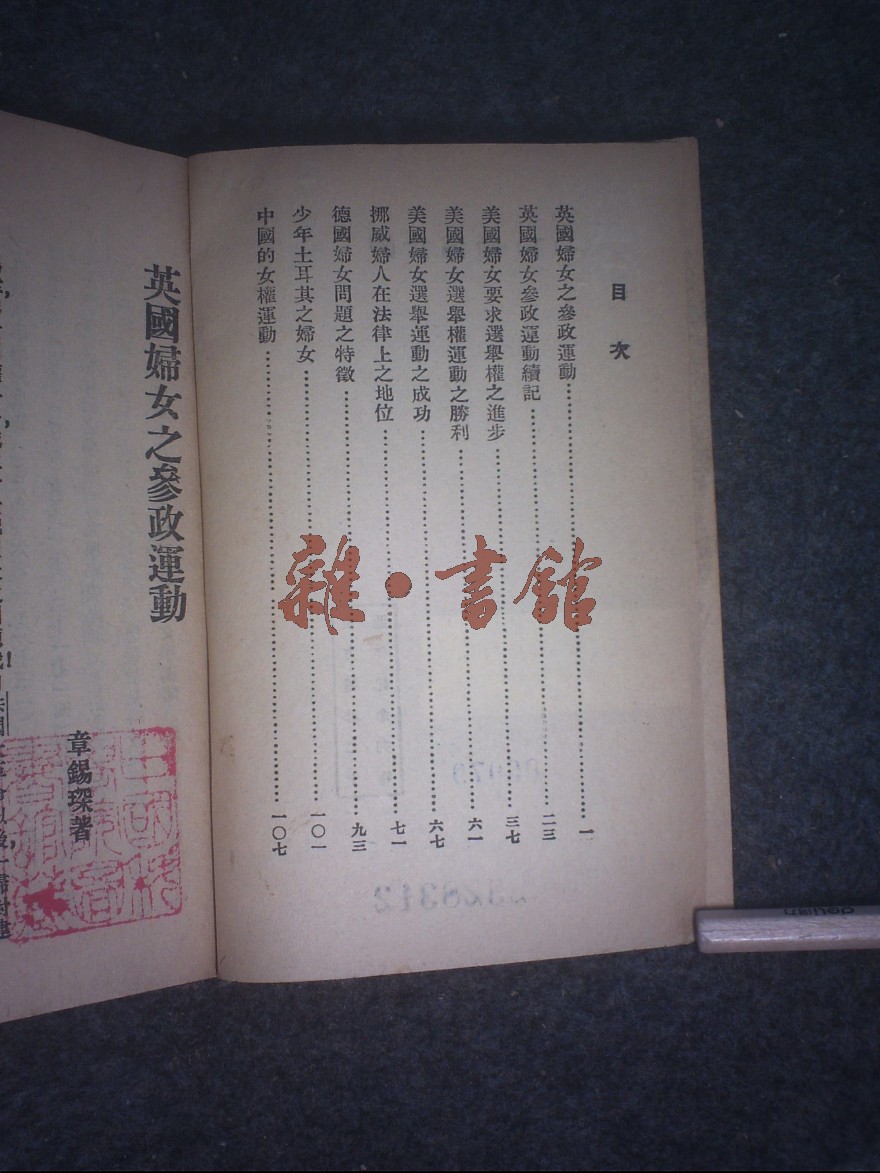 目次
英國婦女之參政運動……一
英國婦女參政運動續記……二三
美國婦女要求選舉權之進步……三七
美國婦女選舉權運動之勝利……六一
美國婦女選舉運動之成功……六七
挪威婦人在法律上之地位……七一
德國婦女問題之特徵……九三
少年土耳其之婦女……一〇一
中國的女權運動……一〇七
英國婦女之參政運動
章錫琛著
雜·書館
deyuan